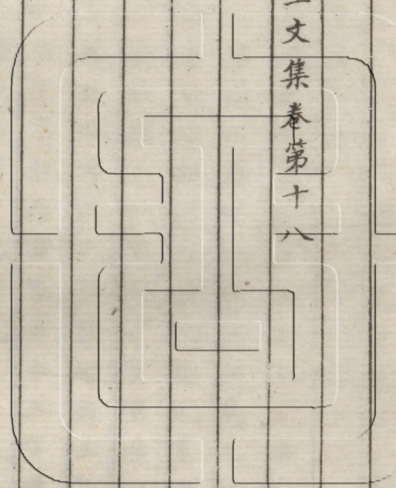 文集卷第十八